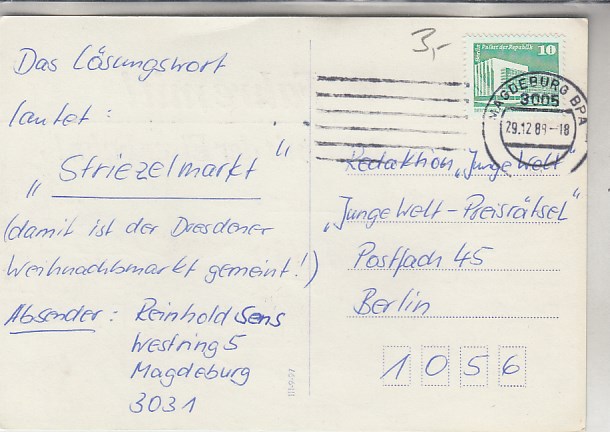 Das Lösungswort
lautet:
"Striezelmarkt"
(damit ist der Dresdener
Weihnachtsmarkt gemeint!)
Absender: Reinhold Sens
Westring 5
Magdeburg
3031
3,-
Berlin Palast der Republik 10
DDR
MAGDEBURG BPA
3005
29.12.89-18
Redaktion „Junge Welt"
„Junge Welt-Preisrätsel"
Postfach 45
Berlin
1056